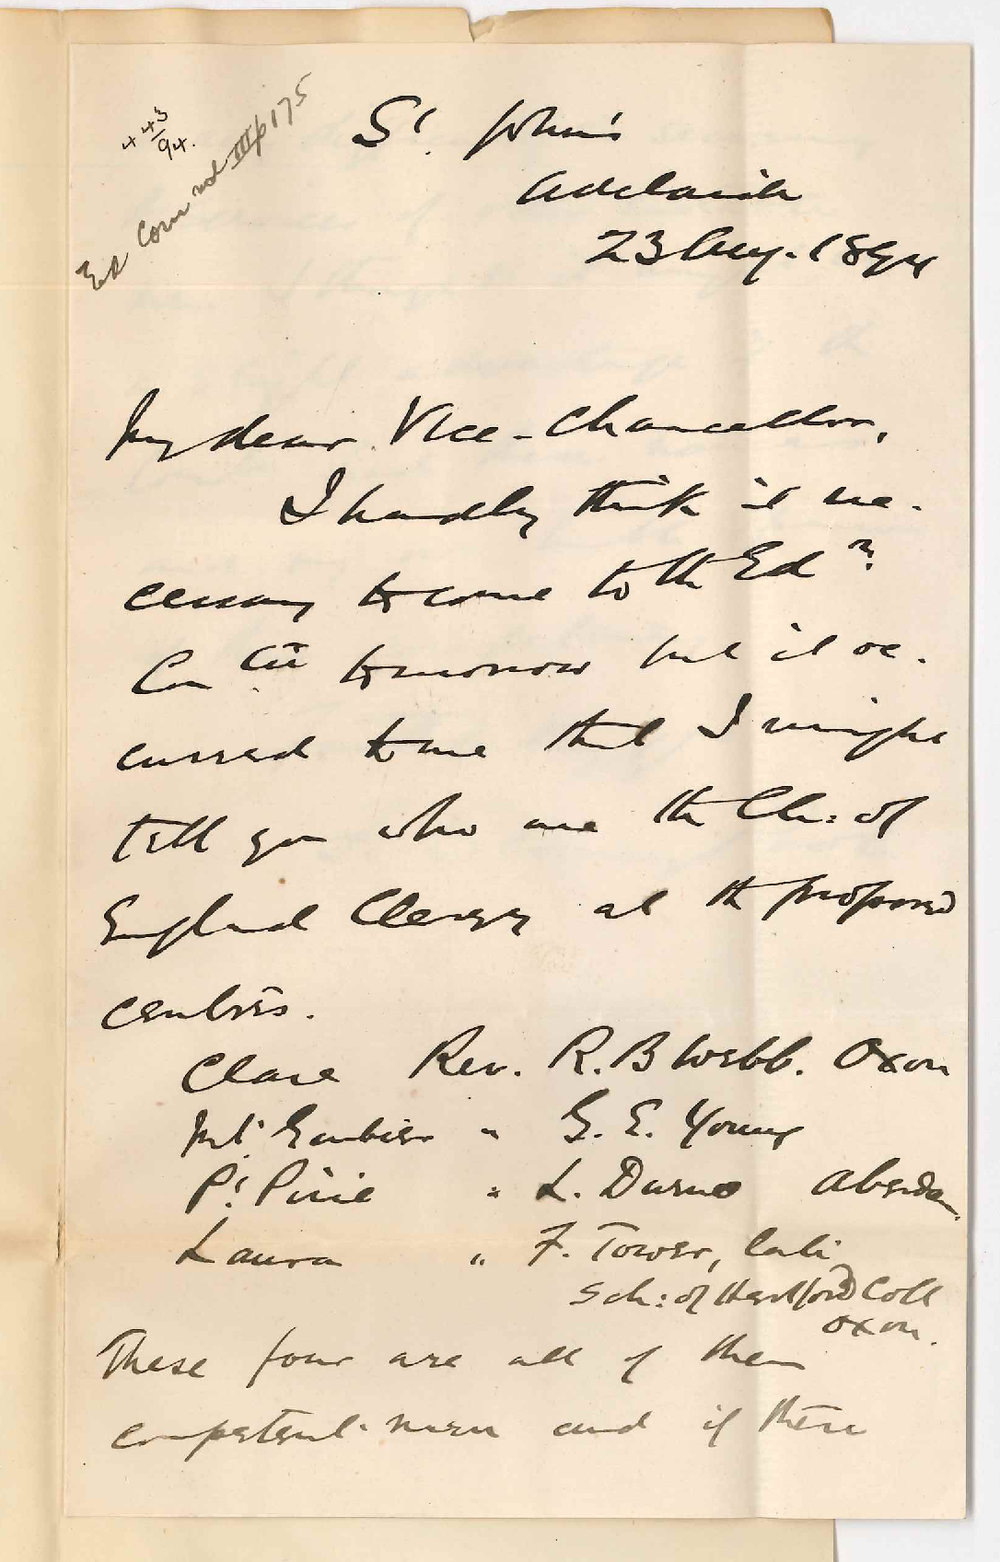 443/94.
Ed Com rod III p 175
St. John's
Adelaide
23 Aug. 1894
My dear Vice-Chancellor,
I hardly think it ne-
cessary to come to the Edn.
Com tee tomorrow but it oc-
curred to me that I might
tell you who are the Ch: of
England Clergy at the proposed
centres.
Clare Rev. R. B Webb. Oxon
Mt. Gambier " G. E. Young
Pt. Pirie " L. Durno Aberdn.
Laura " F. Tower, late
Sch: of Hertford Coll
Oxon.
These four are all of them
competent men and if there